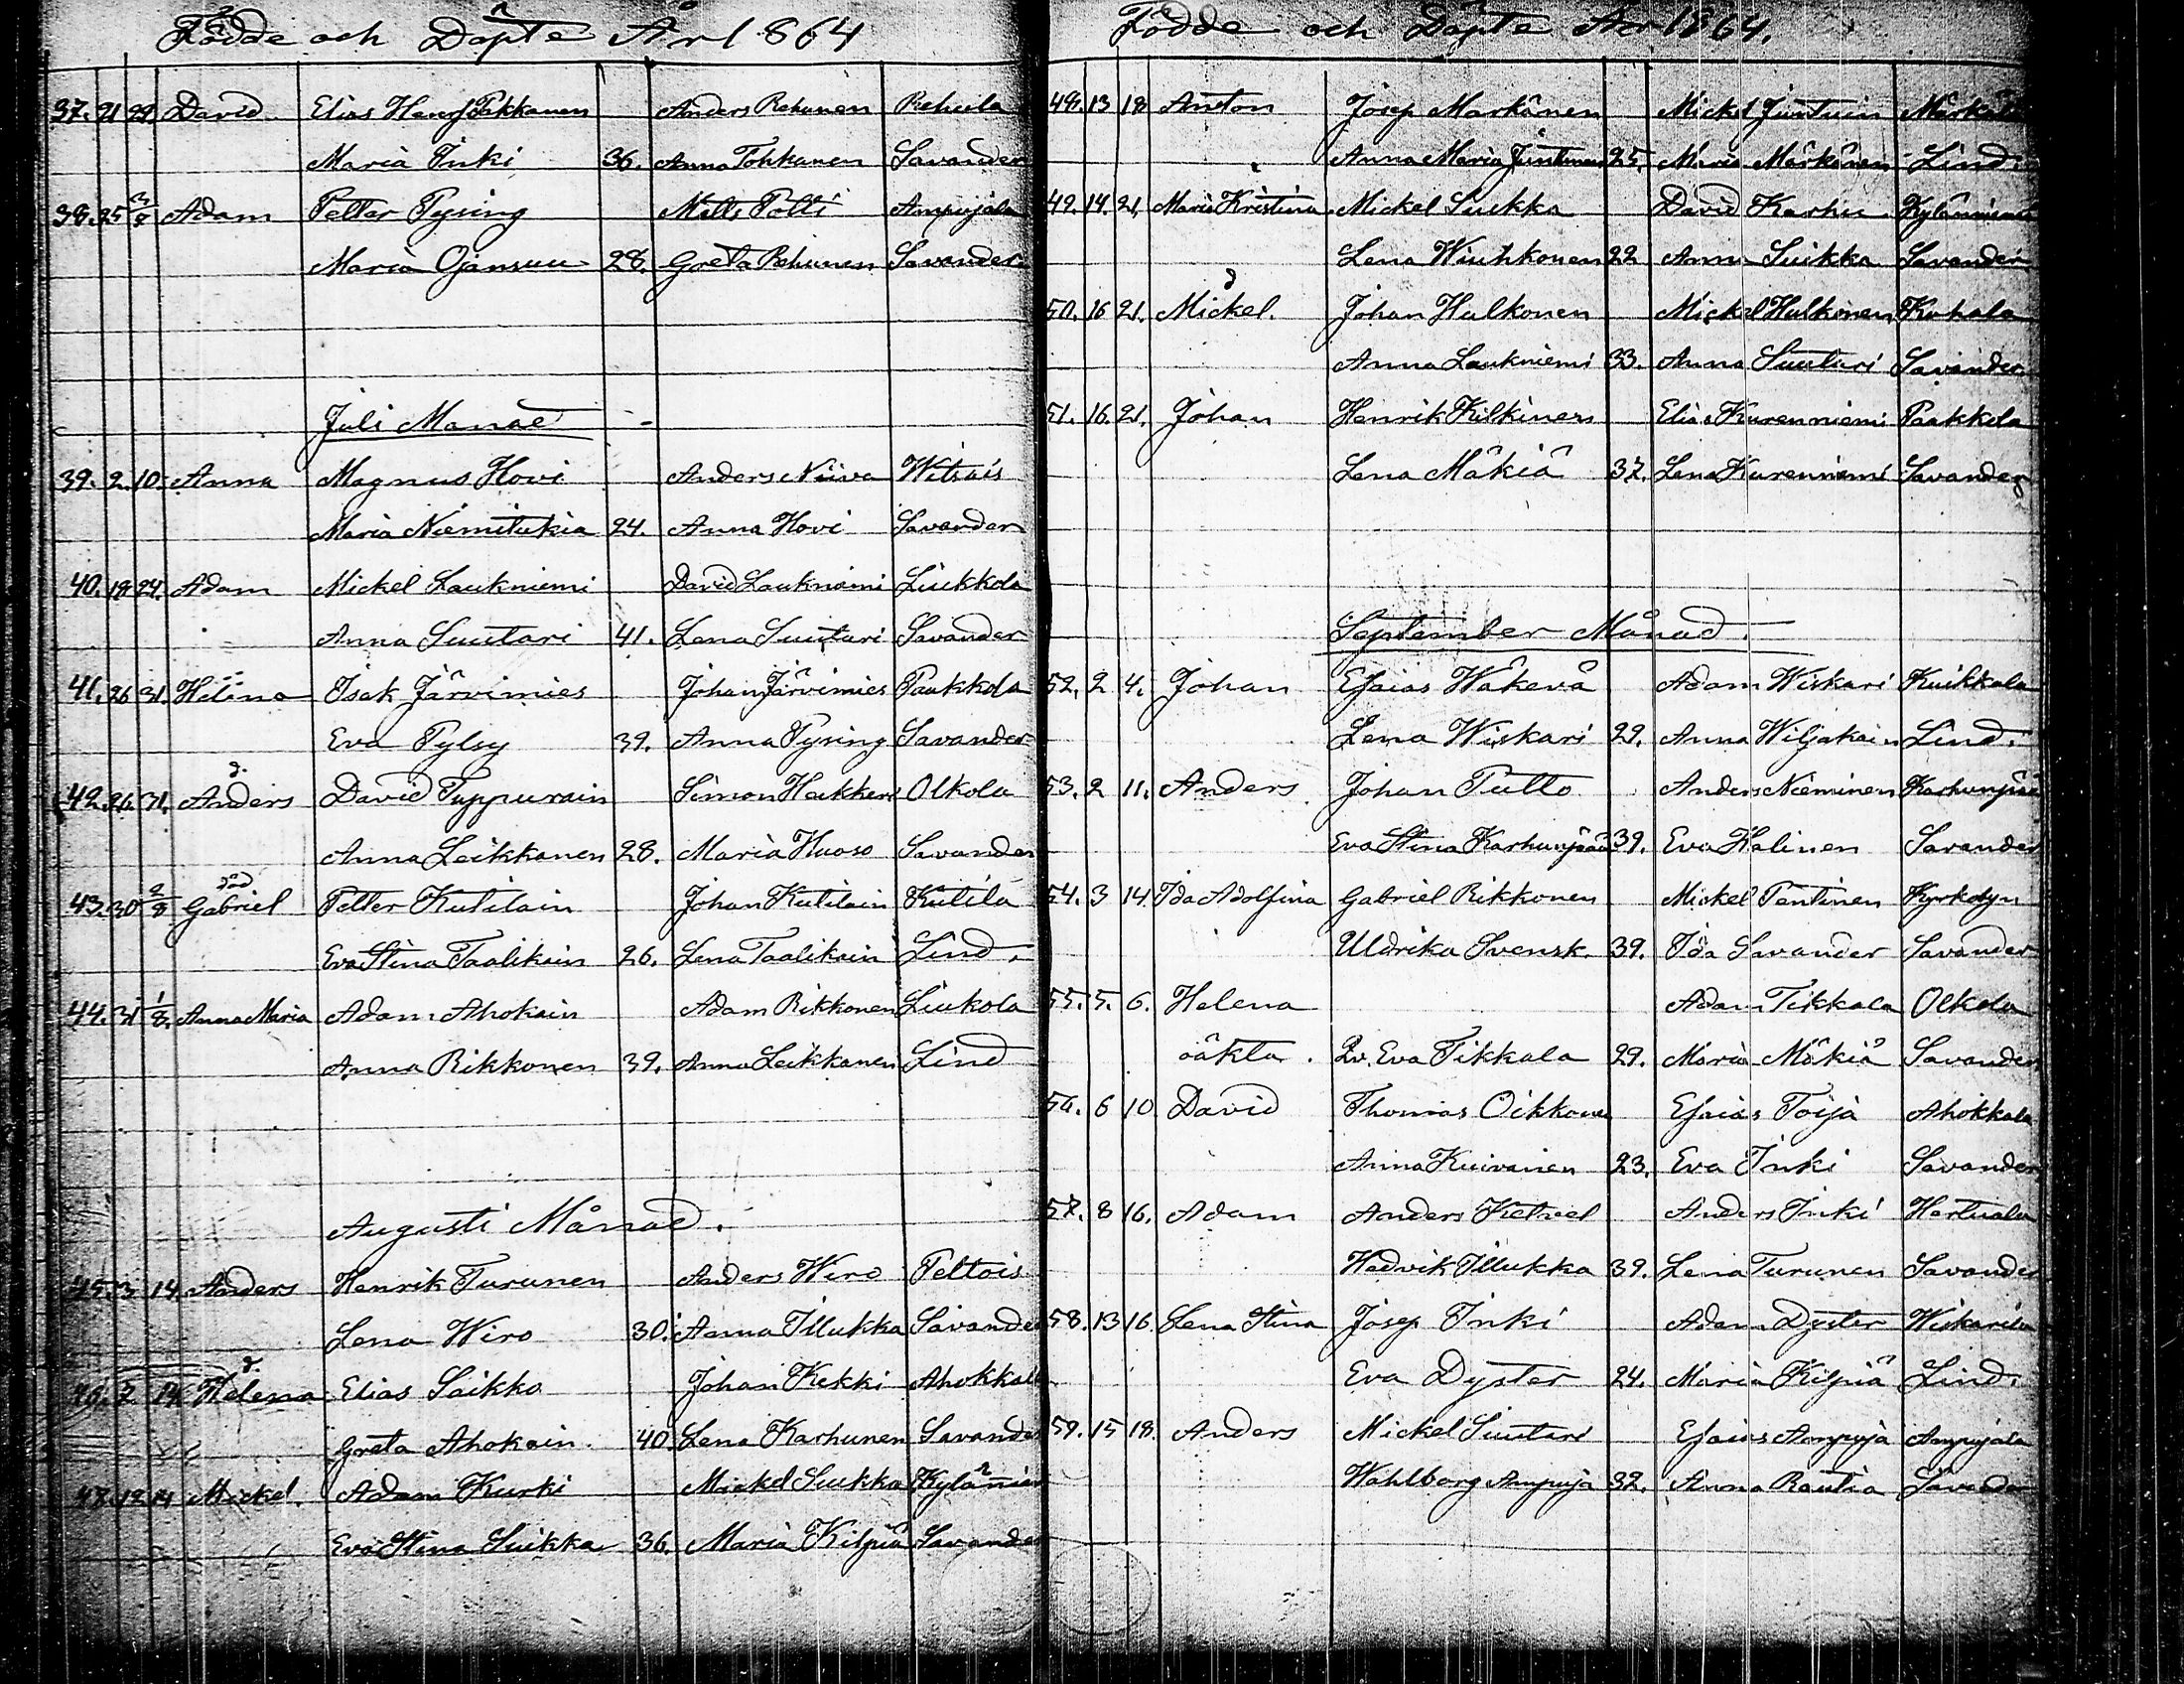 Födde och Döpte År 1864
37. 21 29 David Elias Henrss Pakkanen Anders Rehunen Rehula
Maria Inki 36. Anna Tohkanen Savander
38. 25 3/8 Adam Petter Pysing Matts Polli Ampujala
Maria Ojansuu 28. Greta Rehunen Savander
Juli Månad
39. 2. 10. Anna Magnus Hovi Anders Niiva Witsais
Maria Niemitukia 24. Anna Hovi Savander
40. 18 24. Adam Mickel Laukniemi David Laukniemi Liukkola
Anna Suutari 41. Lena Suutari Savander
41. 26 31. Helena Isak Järvimies Johan Järvimies Paakkola
Eva Pylsy 39. Anna Pysing Savander
d.
42. 26 31. Anders David Tuppurain Simon Heikkeri Olkola
Anna Leikkanen 28. Maria Huoso Savander
död
43. 30 2/8 Gabriel Petter Kutilain Johan Kutilain Kutila
Eva Stina Taalikain 26. Lena Taalikain Lind.
44. 31 1/8. Anna Maria Adam Ahokain Adam Rikkonen Liukola
Anna Rikkonen 39. Anna Leikkanen Lind
Augusti Månad.
45. 3 14. Anders Henrik Turunen Anders Wiro Peltois
Lena Wiro 30. Anna Illukka Savander
d.
46. 7 14. Helena Elias Saikko Johan Kekki Ahokkala
Greta Ahokain. 40 Lena Karhunen Savander
48. 12 14 Mickel. Adam Kurki Mickel Suikka Kylänniemi
Eva Stina Suikka 36. Maria Kilpiä Savander
Födde och Döpte År 1864.
48. 13 18 Anton Josep Markänen Mickel Juntuin Märkälä
Anna Maria Juntunen 25. Maria Märkänen Lind.
49. 14. 21. Maria Kristina Mickel Suikka David Karhu Kylänniemi
Lena Wiuhkonen 22 Anna Suikka Savander
d
50. 16 21. Mickel. Johan Hulkonen Mickel Hulkonen Kuhala
Anna Laukniemi 33. Anna Suutari Savander
51. 16. 21. Johan Henrik Kilkinen Elias Kurenniemi Paakkola
Lena Mäkiä 37. Lena Kurenniemi Savander
September Månad.
52. 2 4. Johan Esaias Wäkevä Adam Wiskari Kuikkala
Lena Wiskari 29. Anna Wiljakain Lind.
53. 2 11. Anders Johan Pullo Anders Nieminen Karhunpää
Eva Stina Karhunpää 39. Eva Halinen Savander
54. 3 14 Ida Adolfina Gabriel Rikkonen Mickel Pentinen Kyrkobyn
Uldrika Svensk 39. Ida Savander Savander
55. 5. 6. Helena Adam Tikkala Olkola
oäkta. Qv. Eva Tikkala 29. Maria Mäkiä Savander
56. 6 10 David Thomas Oikkonen Esaias Toija Ahokkala
Anna Kuivanen 23. Eva Inki Savander
57. 8 16. Adam Anders Ketveel Anders Inki Hartuala
Hedvik Illukka 39. Lena Turunen Savander
58. 13 16. Lena Stina Josep Inki Adam Dyster Wiskarila
Eva Dyster 24. Maria Kilpiä Lind.
59. 15 18. Anders Mickel Suutari Esaias Ampuja Ampujala
Wahlborg Ampuja 32. Anna Rautia Savander